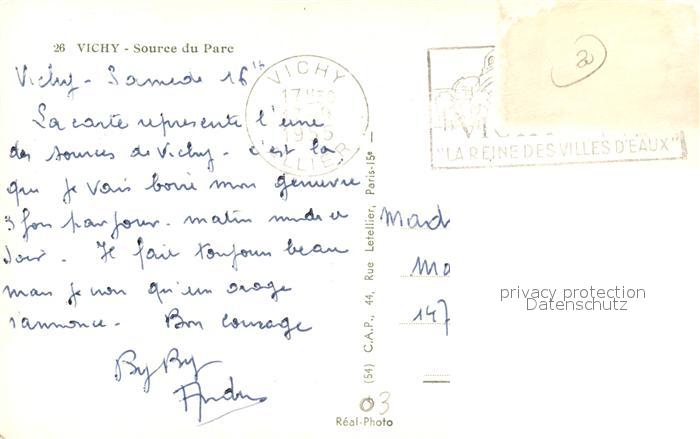 26 VICHY - Source du Parc
Vichy - Samedi 16h
La carte represente l'une
des sources de Vichy - c'est la
que je vais boire mon
3 fois par jour - matin midi et
soir. Il fait toujours beau
mais je qu'un orage
s'annonce - Bon courage
By By
VICHY
17H
1955
ALLIER
"LA REINE DES VILLES D'EAUX"
a
Mad
Mo
147
privacy protection
Datenschutz
(54) C.A.P., 44, Rue Letellier, Paris-15e -
03
Réal-Photo